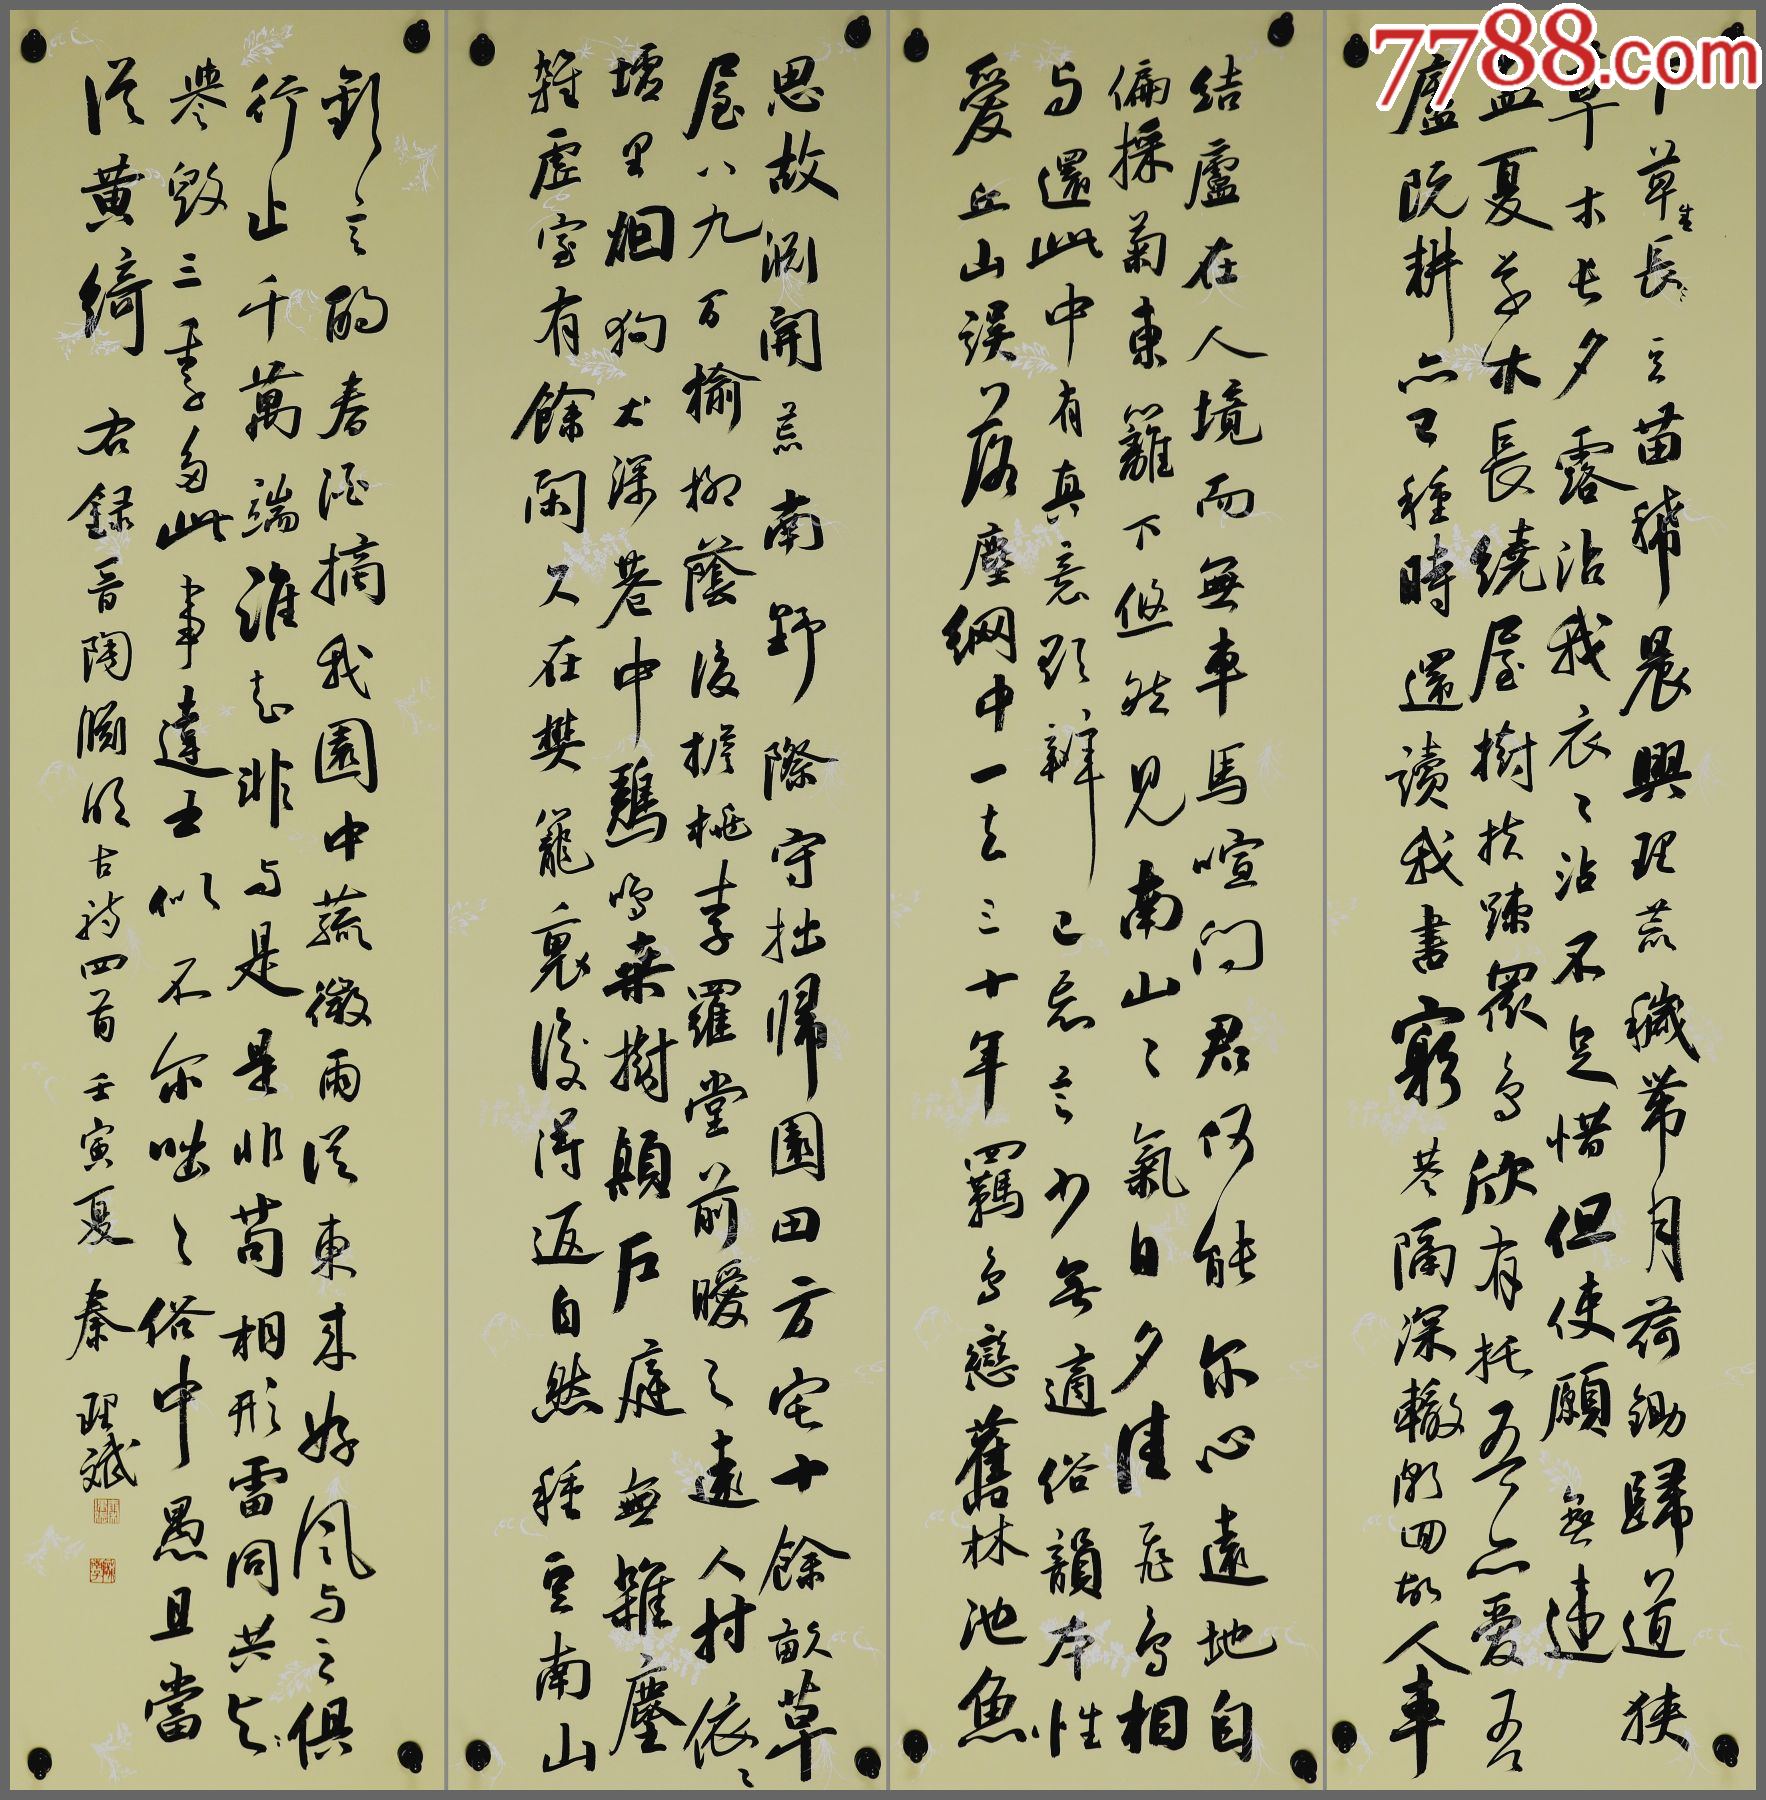 7788.com
下草生長〻豆苗稀晨興理荒穢帶月荷鋤歸道狹
草木長夕露沾我衣〻沾不足惜但使願無違
孟夏草木長繞屋樹扶疎眾鳥欣有托吾亦愛吾
廬既耕亦已種時還讀我書窮巷隔深轍頗回故人車
結廬在人境而無車馬喧问君何能尔心遠地自
偏採菊東籬下悠然見南山〻氣日夕佳飛鳥相
与還此中有真意欲辯已忘言少無適俗韻本性
愛丘山誤落塵網中一去三十年羈鳥戀舊林池魚
思故淵開荒南野際守拙歸園田方宅十餘畝草
屋八九间榆柳蔭後檐桃李羅堂前曖〻遠人村依〻
墟里烟狗吠深巷中鷄鳴桑樹顛戶庭無雜塵
雜虛室有餘閑久在樊籠裏復得返自然種豆南山
歡言酌春酒摘我園中蔬微雨從東來好風与之俱
行止千萬端誰知非与是是非苟相形雷同共譽
譽毀三季多此事達士似不尔咄〻俗中愚且當
從黃綺 右錄晉陶淵明古詩四首 壬寅夏 秦理斌